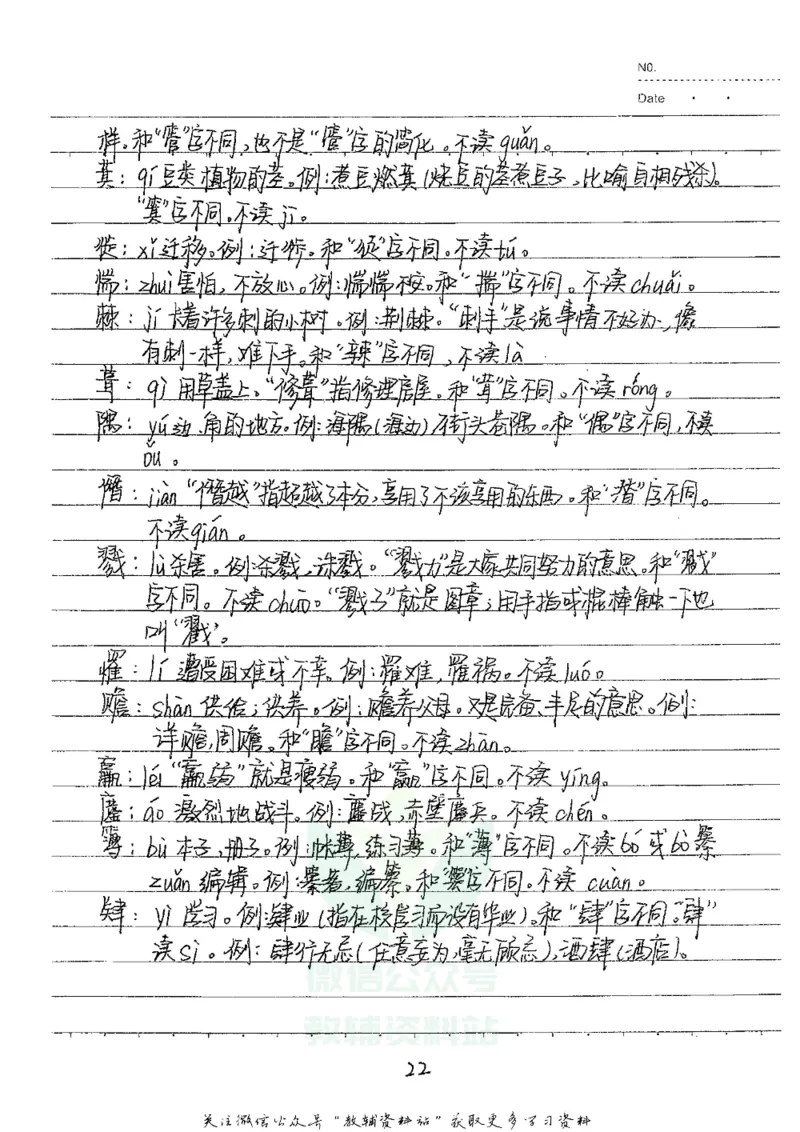 N0.
Date
样。和“管”字不同，也不是“馆”字的简化。不读guǎn。
萁：qí豆类植物的茎。例：煮豆燃萁（烧豆的茎煮豆子，比喻自相残杀）。
“箕”字不同。不读jī。
徙：xǐ迁移。例：迁徙。和“徒”字不同。不读tú。
惴：zhuì害怕，不放心。例：惴惴不安。和“揣”字不同。不读chuǎi。
棘：jí 长着许多刺的小树。例：荆棘。“刺手”是说事情不好办，像
有刺一样，难下手。和“辣”字不同，不读là
葺：qì 用草盖上。“修葺”指修理房屋。和“茸”字不同。不读róng。
隅：yú边、角的地方。例：海隅（海边），街头巷隅。和“偶”字不同，不读
ǒu。
僭：jiàn “僭越”指超越了本分，享用了不该享用的东西。和“潜”字不同。
不读qián。
戮：lù杀害。例：杀戮，诛戮。“戮力”是大家共同努力的意思。和“戳”
字不同。不读chuō。“戳子”就是图章；用手指或棍棒触一下也
叫“戳”。
罹：lí 遭受困难或不幸。例：罹难，罹祸。不读luó。
赡：shàn 供给；供养。例：赡养父母。又是完备、丰足的意思。例：
详赡，周赡。和“瞻”字不同。不读zhān。
羸：léi “羸弱”就是瘦弱。和“赢”字不同。不读yíng。
鏖：áo 激烈地战斗。例：鏖战，赤壁鏖兵。不读chén。
簿：bù 本子，册子。例：帐簿，练习簿。和“薄”字不同。不读bó或bò纂
zuǎn 编辑。例：纂者，编纂。和“篡”字不同。不读cuàn。
肄：yì 学习。例：肄业（指在校学习而没有毕业）。和“肆”字不同。“肆”
读sì。例：肆行无忌（任意妄为，毫无顾忌），酒肆（酒店）。
微信公众号
教辅资料站
22
关注微信公众号“教辅资料站”获取更多学习资料